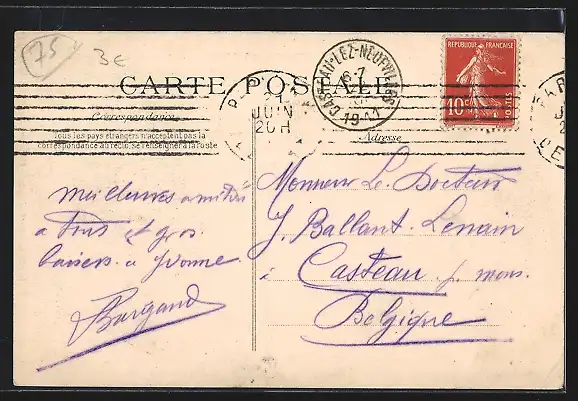 75
3€
CARTE POSTALE
Correspondance
Tous les pays étrangers n'acceptent pas la
correspondance au recto, se renseigner à la Poste
Adresse
JUIN
20H
CASTEAU-LEZ-NEUFVILLES
6-7
1911
REPUBLIQUE FRANÇAISE
10c
POSTES
Meilleures amitiés
à tous et gros
baisers à Yvonne
Monsieur Le Docteur
J. Ballant-Lenain
à Casteau p. mons.
Belgique